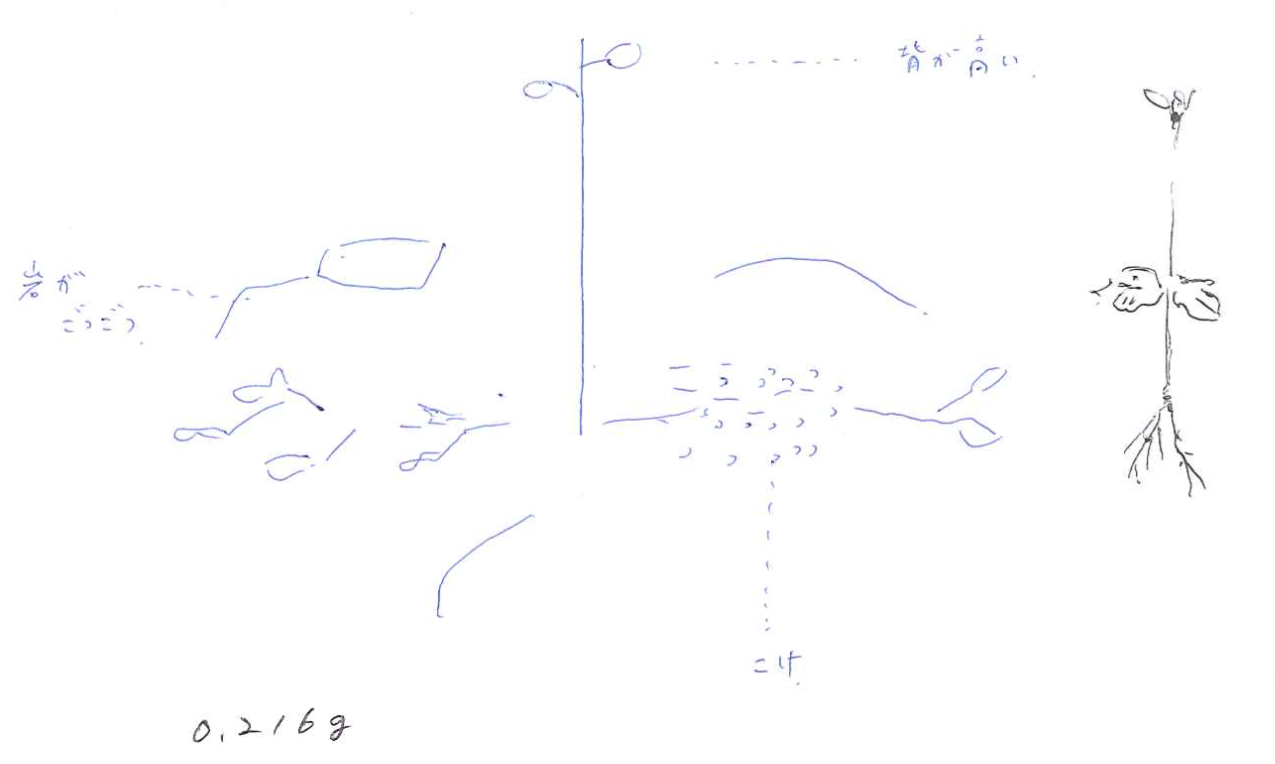 背が高い
岩が
ごつごつ
こけ
0.216g